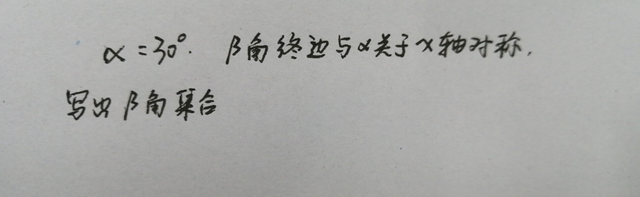 α=30°. β角终边与α关于x轴对称.
写出β角集合